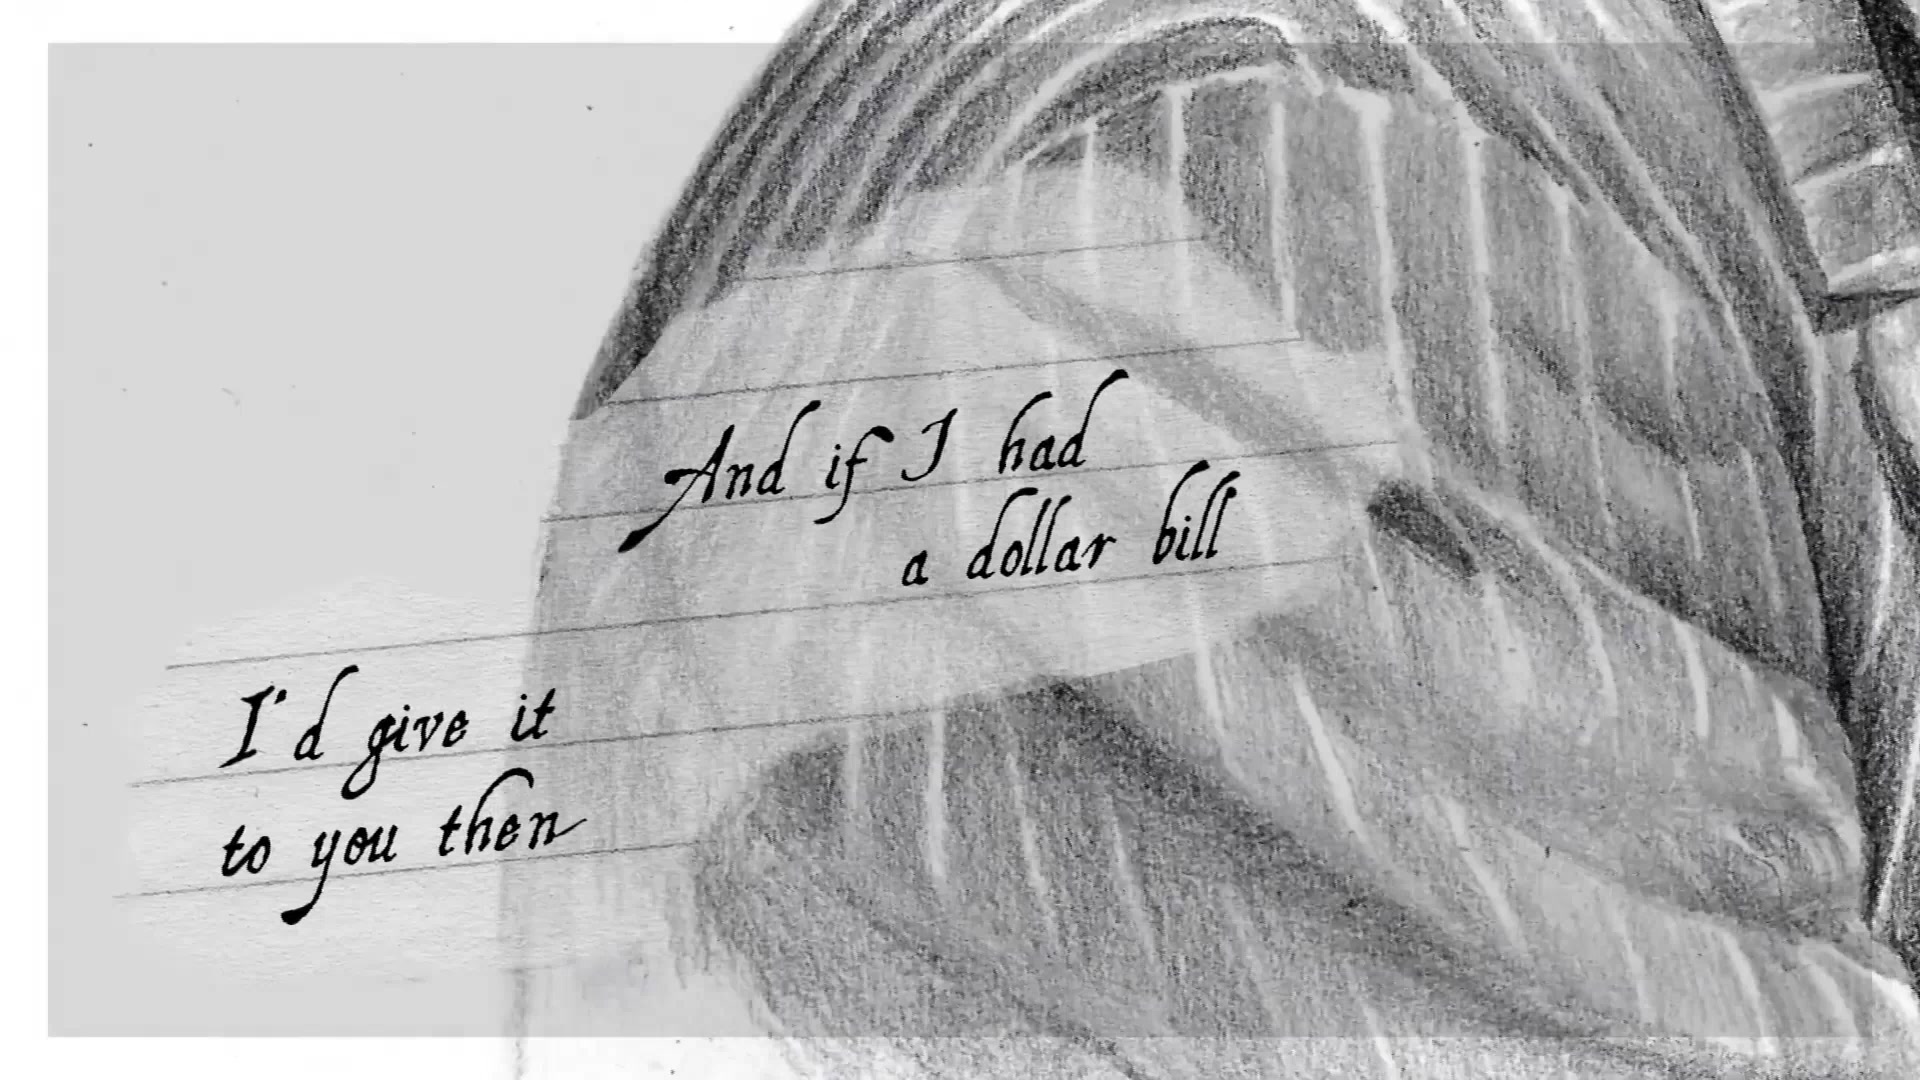 And if I had
a dollar bill
I'd give it
to you then